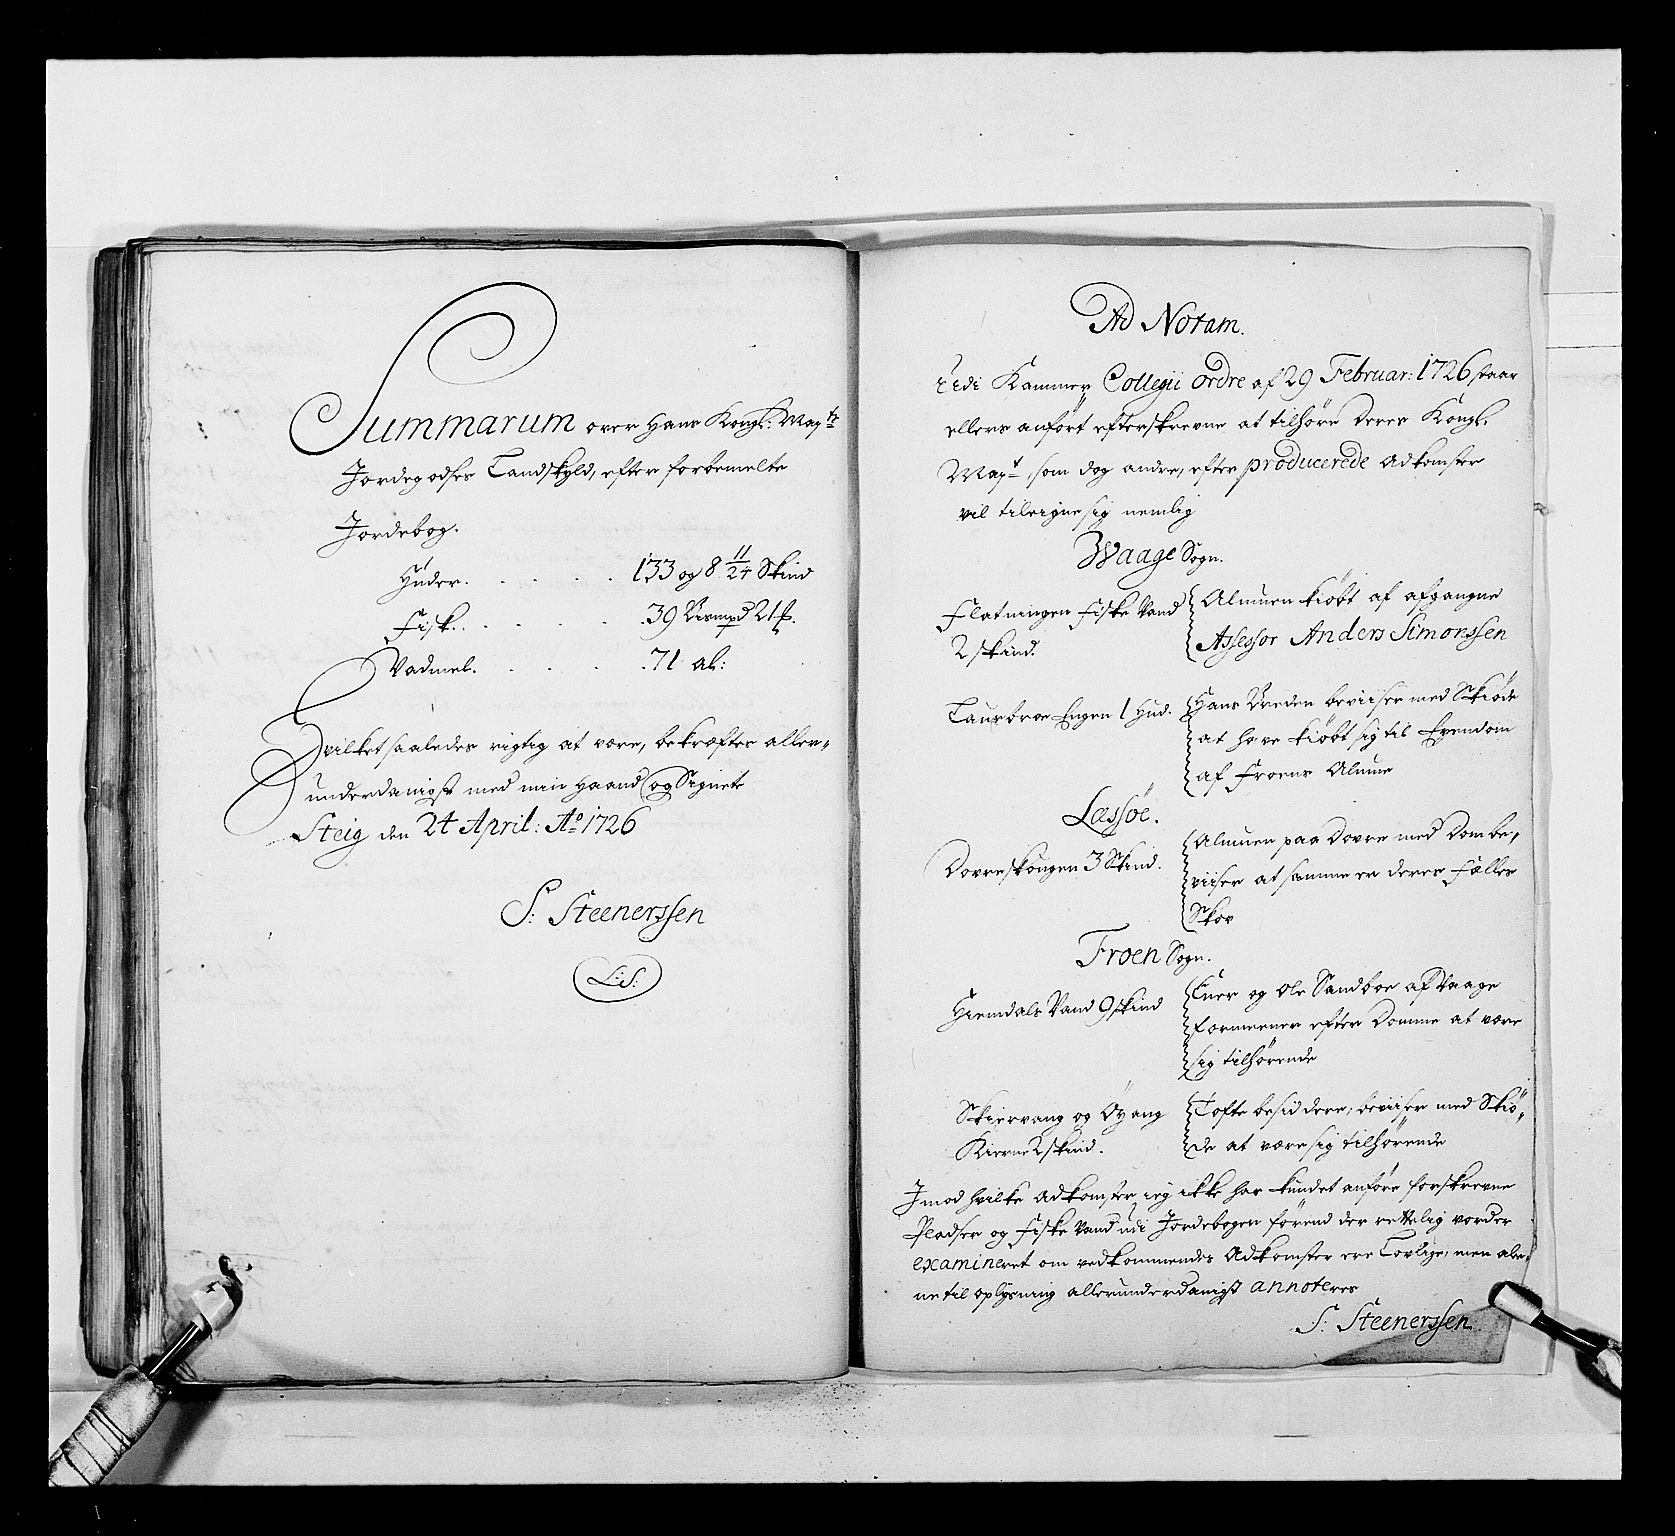 Summarum over Hans Kongl: Mayts
Jordegodses Landskyld, efter forbemelte
Jordebog.
Huder. . . . . . 133 og 8 11/24 Skind
Fisk. . . . . . 39 Bismpd 21 ℔.
Vadmel. . . . . 71 al:
Hvilket saaledes rigtig at være, bekræfter aller-
underdanigst med min Haand og Signete
Steig den 24 April: Ao 1726
S: Steenerssen
L:S:
Ad Notam.
Udi Kammer Collegii Ordre af 29 Februar: 1726 staar
ellers anført efterskrevne at tilhøre Deres Kongl.
Mayt, som dog andre, efter producerede Adkomster
vil tileigne sig nemlig
Waage Sogn.
Flatningen Fiske Vand
2 skind.
Almuen kiøbt af afgangne
Assessor Anders Simonssen
Laurbroe Engen 1 Hud.
Hans Breden beviiser med Skiøde
at have kiøbt sig til Eyendom
af Froens Almue
Læssøe.
Dovreskougen 3 Skind.
Almuen paa Dovre med Dom be-
viiser at samme er deres Fælles
Skov
Froen Sogn.
Hiemdals Vand 9 skind
Iver og Ole Sandboe af Vaage
formeener efter Domme at være
sig tilhørende
Skiervang og Øyang
Kierne 2 skind.
Tofte besiddere, beviiser med Skiø-
de at være sig tilhørende
Imod hvilke Adkomster ieg ikke har kundet anføre forskrevne
Pladser og Fiske Vand udi Jordebogen førend der rettelig vorder
examineret om vedkommendes Adkomster ere Lovlige, men ale-
ne til oplysning allerunderdanigst annoteres
S: Steenerssen